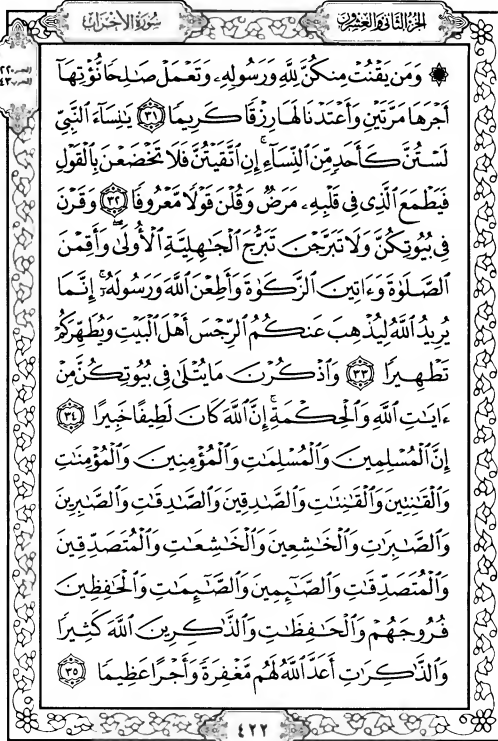 الجزء الثاني والعشرون
سورة الأحزاب
۞ وَمَن يَقْنُتْ مِنكُنَّ لِلَّهِ وَرَسُولِهِۦ وَتَعْمَلْ صَٰلِحًا نُّؤْتِهَآ
أَجْرَهَا مَرَّتَيْنِ وَأَعْتَدْنَا لَهَا رِزْقًا كَرِيمًا ٣١ يَٰنِسَآءَ ٱلنَّبِيِّ
لَسْتُنَّ كَأَحَدٍ مِّنَ ٱلنِّسَآءِ ۚ إِنِ ٱتَّقَيْتُنَّ فَلَا تَخْضَعْنَ بِٱلْقَوْلِ
فَيَطْمَعَ ٱلَّذِى فِى قَلْبِهِۦ مَرَضٌ وَقُلْنَ قَوْلًا مَّعْرُوفًا ٣٢ وَقَرْنَ
فِى بُيُوتِكُنَّ وَلَا تَبَرَّجْنَ تَبَرُّجَ ٱلْجَٰهِلِيَّةِ ٱلْأُولَىٰ ۖ وَأَقِمْنَ
ٱلصَّلَوٰةَ وَءَاتِينَ ٱلزَّكَوٰةَ وَأَطِعْنَ ٱللَّهَ وَرَسُولَهُۥٓ ۚ إِنَّمَا
يُرِيدُ ٱللَّهُ لِيُذْهِبَ عَنكُمُ ٱلرِّجْسَ أَهْلَ ٱلْبَيْتِ وَيُطَهِّرَكُمْ
تَطْهِيرًا ٣٣ وَٱذْكُرْنَ مَا يُتْلَىٰ فِى بُيُوتِكُنَّ مِنْ
ءَايَٰتِ ٱللَّهِ وَٱلْحِكْمَةِ ۚ إِنَّ ٱللَّهَ كَانَ لَطِيفًا خَبِيرًا ٣٤
إِنَّ ٱلْمُسْلِمِينَ وَٱلْمُسْلِمَٰتِ وَٱلْمُؤْمِنِينَ وَٱلْمُؤْمِنَٰتِ
وَٱلْقَٰنِتِينَ وَٱلْقَٰنِتَٰتِ وَٱلصَّٰدِقِينَ وَٱلصَّٰدِقَٰتِ وَٱلصَّٰبِرِينَ
وَٱلصَّٰبِرَٰتِ وَٱلْخَٰشِعِينَ وَٱلْخَٰشِعَٰتِ وَٱلْمُتَصَدِّقِينَ
وَٱلْمُتَصَدِّقَٰتِ وَٱلصَّٰٓئِمِينَ وَٱلصَّٰٓئِمَٰتِ وَٱلْحَٰفِظِينَ
فُرُوجَهُمْ وَٱلْحَٰفِظَٰتِ وَٱلذَّٰكِرِينَ ٱللَّهَ كَثِيرًا
وَٱلذَّٰكِرَٰتِ أَعَدَّ ٱللَّهُ لَهُم مَّغْفِرَةً وَأَجْرًا عَظِيمًا ٣٥
٤٢٢